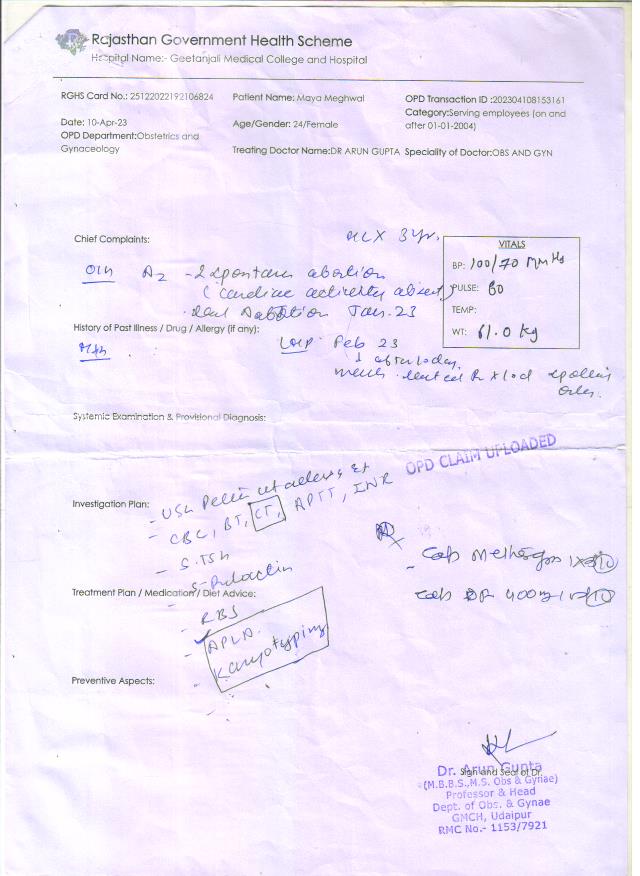 Rajasthan Government Health Scheme
Hospital Name:- Geetanjali Medical College and Hospital
RGHS Card No.: 25122022192106824
Patient Name: Maya Meghwal
OPD Transaction ID :202304108153161
Date: 10-Apr-23
Age/Gender: 24/Female
Category:Serving employees (on and after 01-01-2004)
OPD Department:Obstetrics and Gynaceology
Treating Doctor Name:DR ARUN GUPTA
Speciality of Doctor:OBS AND GYN
3 yr.
Chief Complaints:
VITALS
BP: 100/70 mmHg
PULSE: 80
TEMP:
WT: 61.0 kg
O/H A2 - 2 spontan abortion
(cardiac activity absent)
abortion Jan. 23
History of Past Illness / Drug / Allergy (if any):
M/H
LMP. Feb 23
Systemic Examination & Provisional Diagnosis:
OPD CLAIM UPLOADED
Investigation Plan:
- USG Pelvis
- CBC, BT, CT, APTT, INR
- S.TSH
- S-Prolactin
Rx
Treatment Plan / Medication / Diet Advice:
- RBS
- APLA.
Karyotyping
400mg
Preventive Aspects:
Sign and Seal of Dr.
Dr. Arun Gupta
(M.B.B.S.,M.S. Obs & Gynae)
Professor & Head
Dept. of Obs. & Gynae
GMCH, Udaipur
RMC No.- 1153/7921